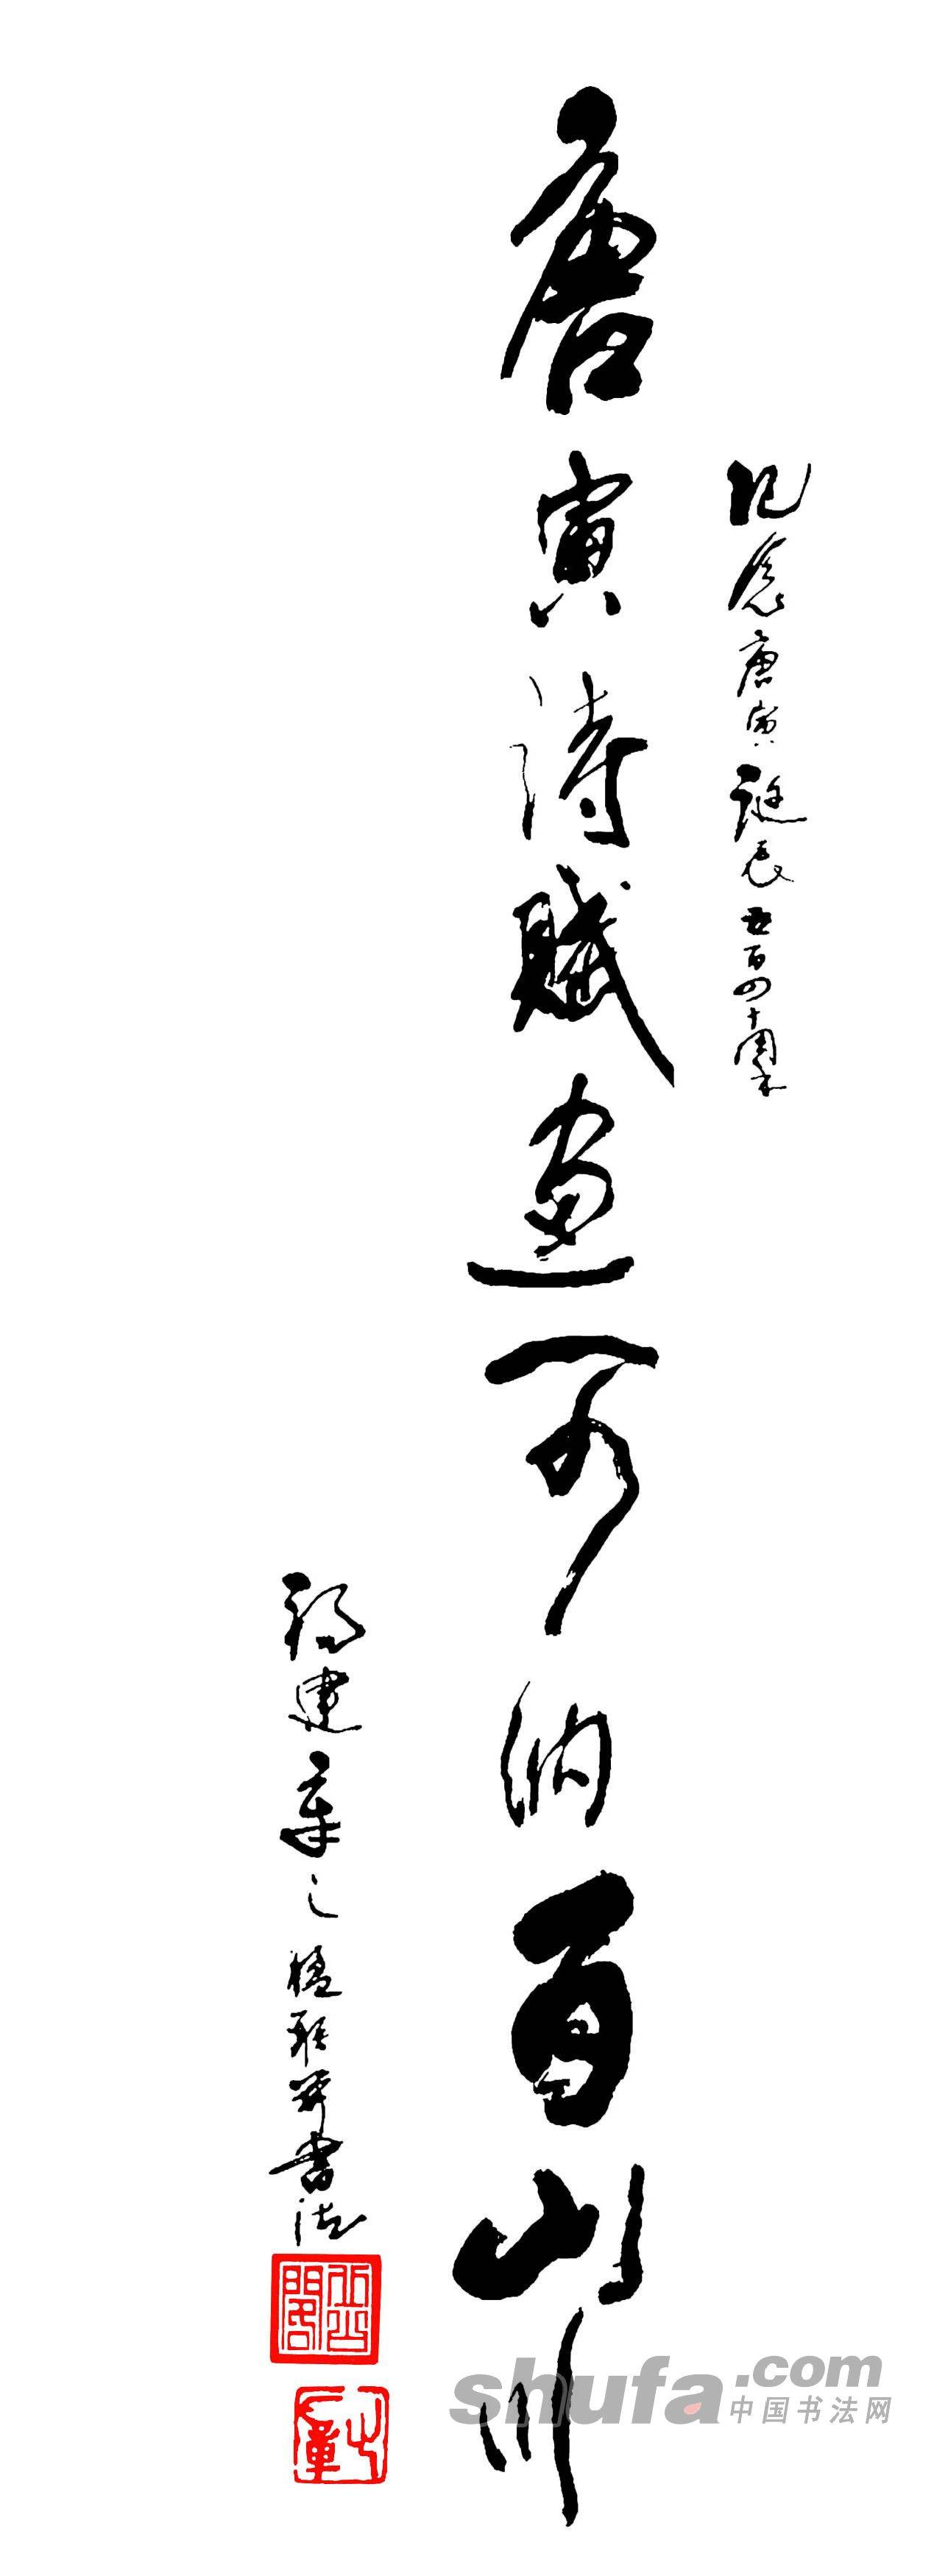 纪念唐寅诞辰五百四十周年
唐寅诗赋画可纳百山川
福建章之楹联并书法
shufa.com
中国书法网